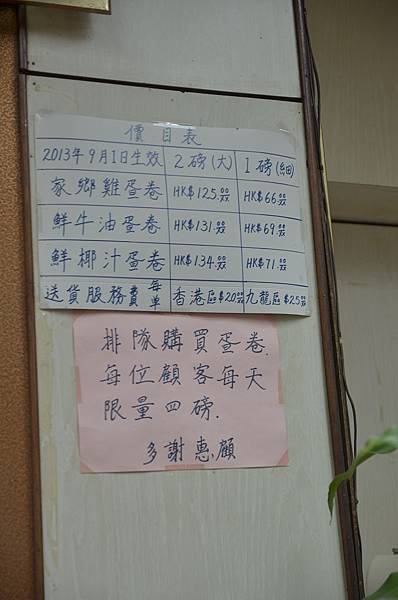 價目表
2013年9月1日生效 2磅(大) 1磅(細)
家鄉雞蛋卷 HK$125.00 HK$66.00
鮮牛油蛋卷 HK$131.00 HK$69.00
鮮椰汁蛋卷 HK$134.00 HK$71.00
送貨服務費每單 香港區$20.00 九龍區$25.00
排隊購買蛋卷.
每位顧客每天
限量四磅.
多謝惠顧